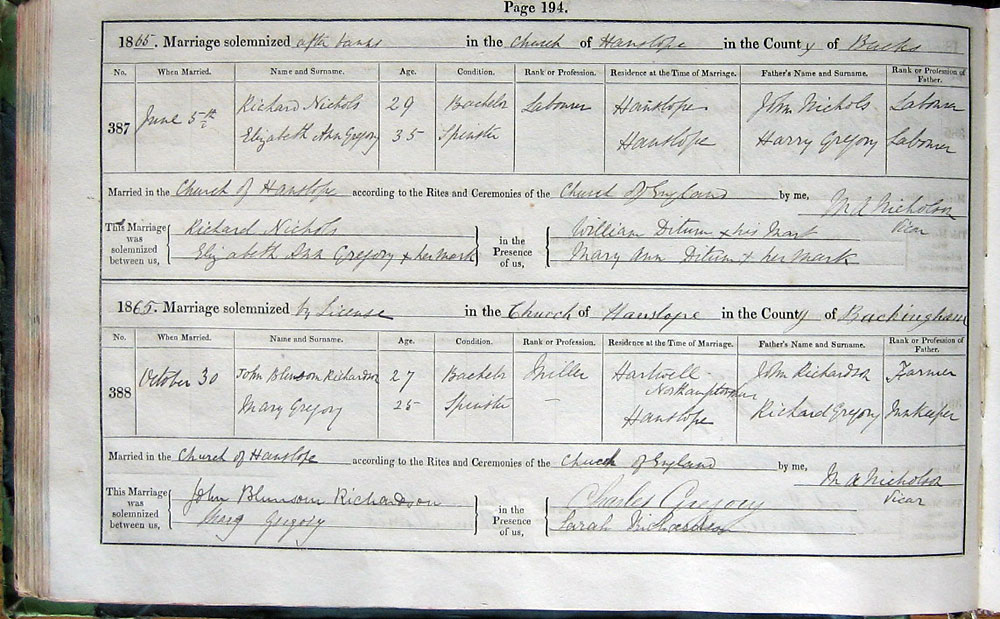 Page 194.
1865. Marriage solemnized after banns in the Church of Hanslope in the County of Bucks
No. When Married. Name and Surname. Age. Condition. Rank or Profession. Residence at the Time of Marriage. Father's Name and Surname. Rank or Profession of Father.
387 June 5th Richard Nichols 29 Bachelor Labourer Hanslope John Nichols Labourer
Elizabeth Ann Gregory 35 Spinster Hanslope Harry Gregory Labourer
Married in the Church of Hanslope according to the Rites and Ceremonies of the Church of England by me, M A Nicholson
Vicar
This Marriage was solemnized between us, Richard Nichols in the Presence of us, William Ditum x his Mark
Elizabeth Ann Gregory x her mark Mary Ann Ditum x her Mark
1865. Marriage solemnized by License in the Church of Hanslope in the County of Buckingham
No. When Married. Name and Surname. Age. Condition. Rank or Profession. Residence at the Time of Marriage. Father's Name and Surname. Rank or Profession of Father.
388 October 30 John Blunsom Richardson 27 Bachelor Miller Hartwell John Richardson Farmer
Mary Gregory 25 Spinster – Hanslope Richard Gregory Innkeeper
Married in the Church of Hanslope according to the Rites and Ceremonies of the Church of England by me, M A Nicholson
Vicar
This Marriage was solemnized between us, John Blunsom Richardson in the Presence of us, Charles Gregory
Mary Gregory Sarah Richardson